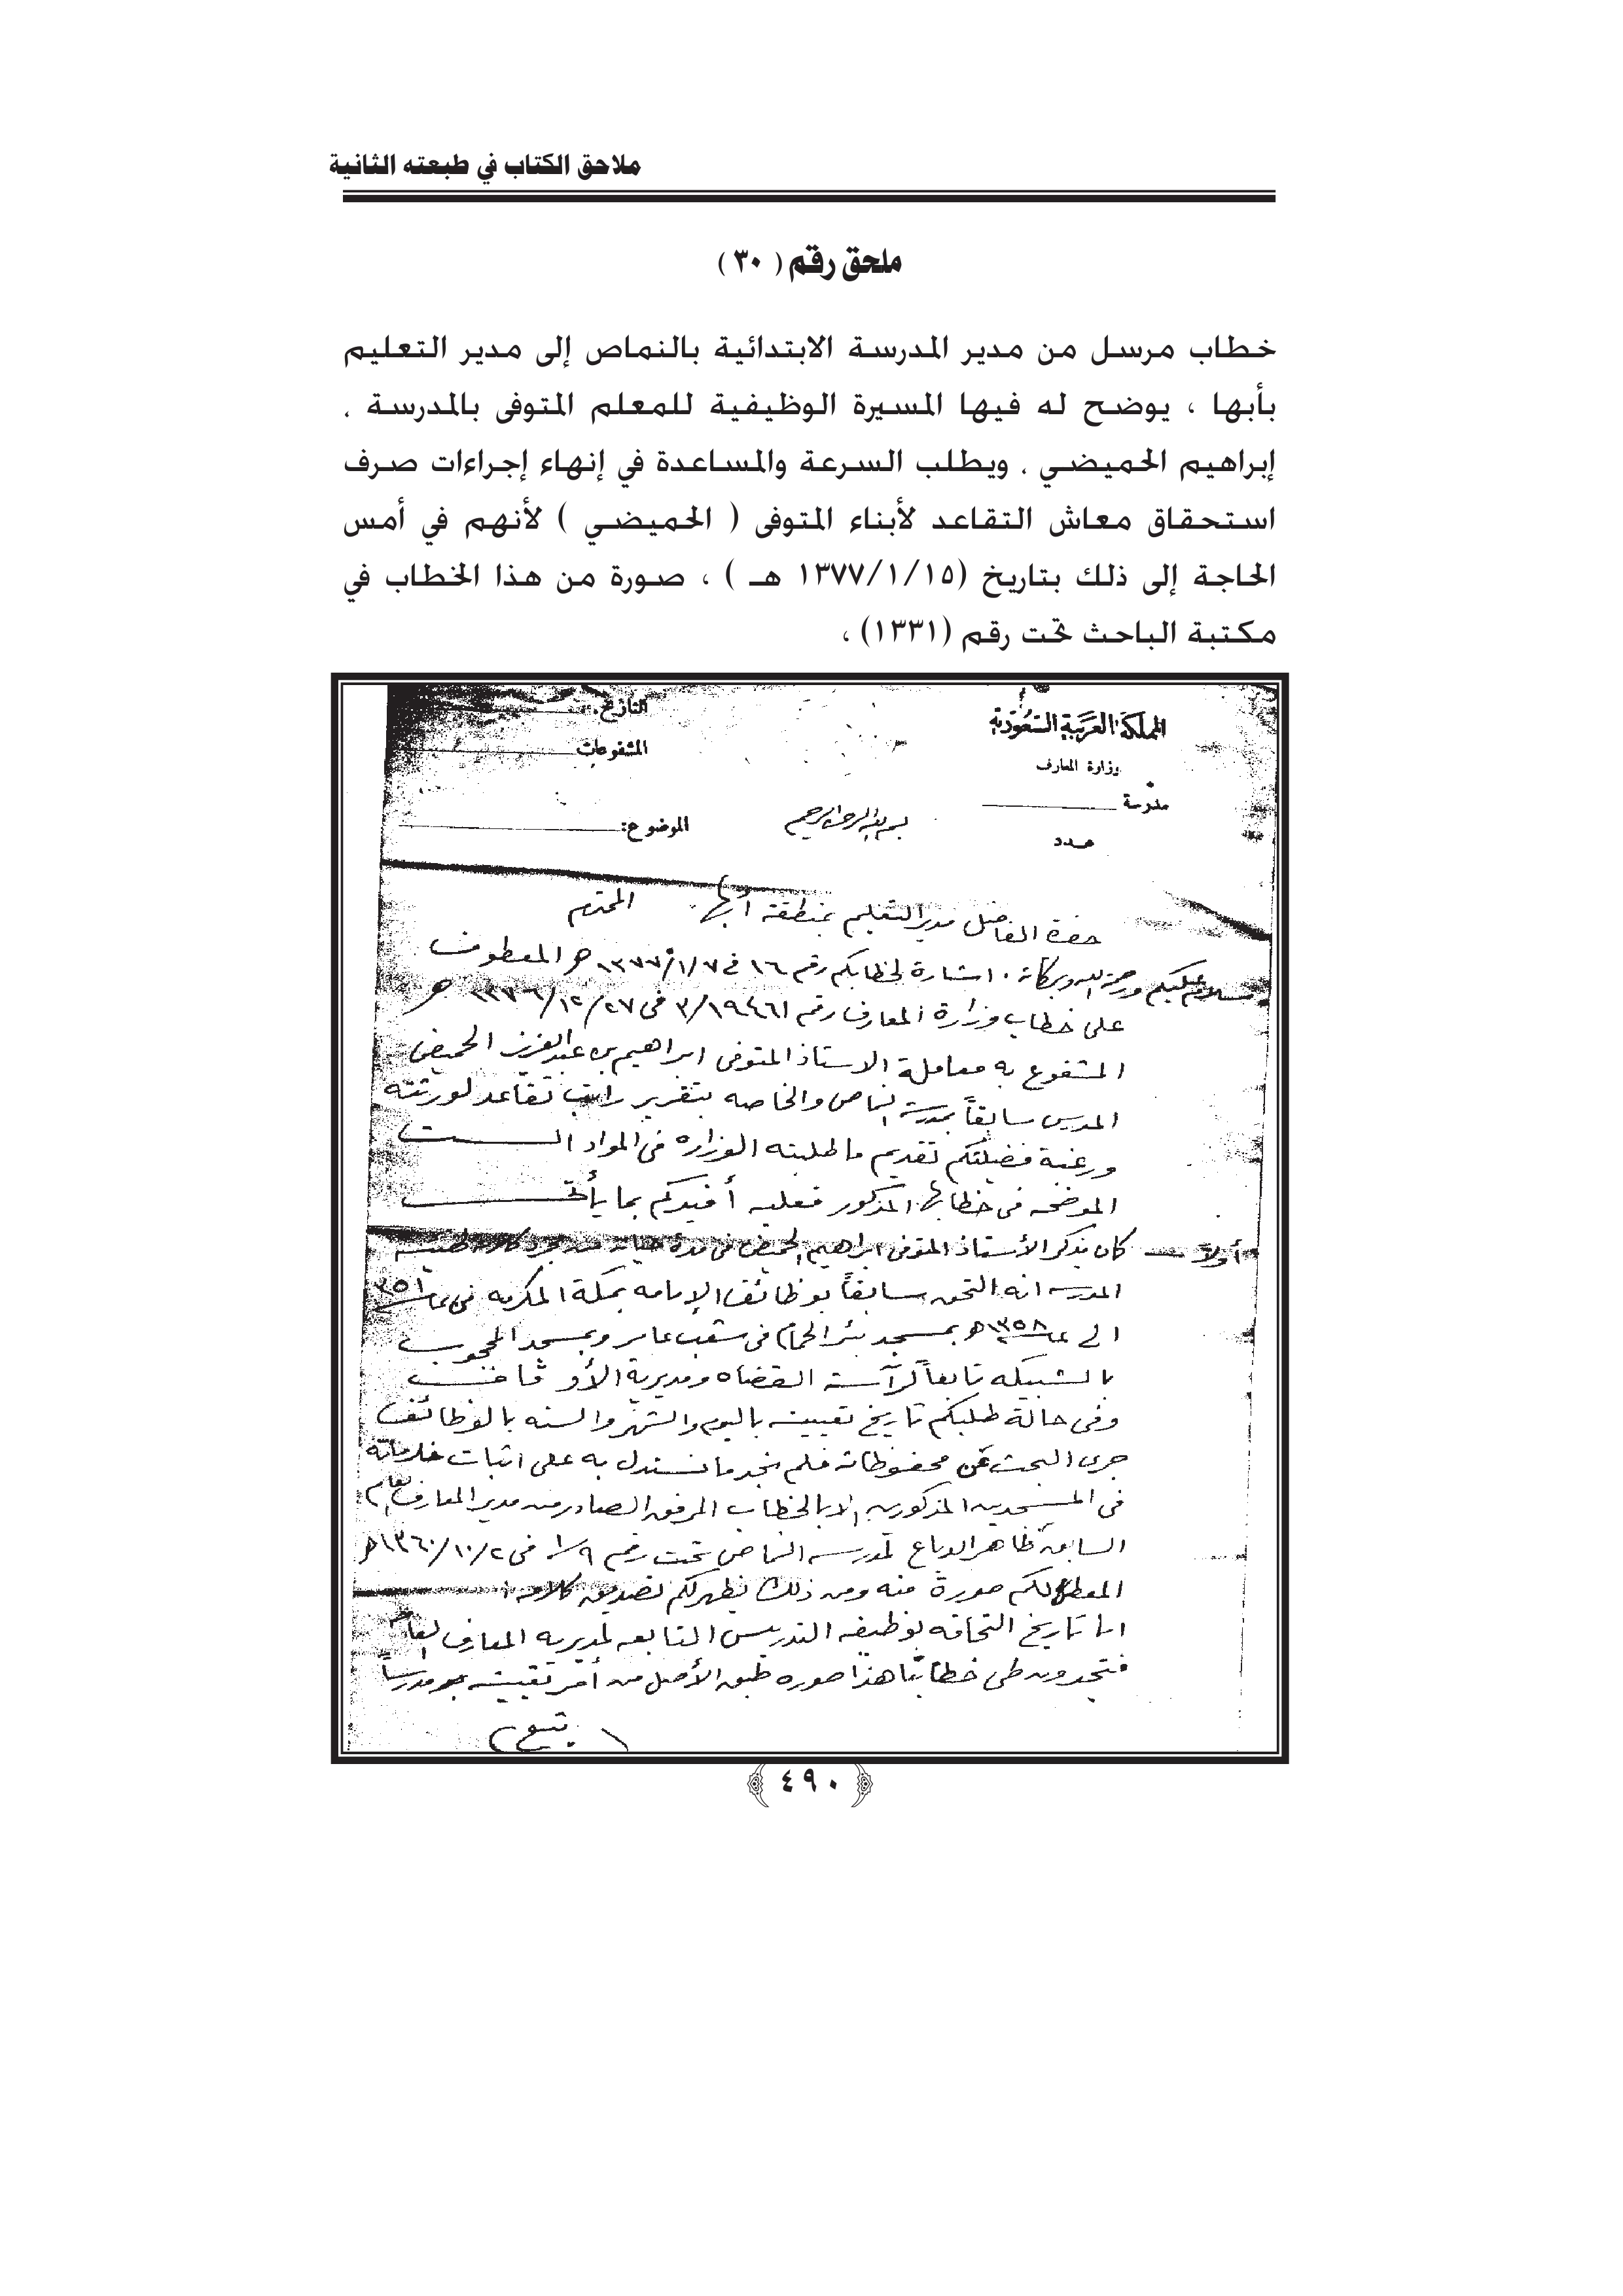 ملاحق الكتاب في طبعته الثانية
ملحق رقم ( ٣٠ )
خطاب مرسل من مدير المدرسة الابتدائية بالنماص إلى مدير التعليم
بأبها ، يوضح له فيها المسيرة الوظيفية للمعلم المتوفى بالمدرسة .
إبراهيم الحميضي . ويطلب السرعة والمساعدة في إنهاء إجراءات صرف
استحقاق معاش التقاعد لأبناء المتوفى ( الحميضي ) لأنهم في أمس
الحاجة إلى ذلك بتاريخ (١٣٧٧/١/١٥ هـ ) ، صورة من هذا الخطاب في
مكتبة الباحث تحت رقم (١٣٣١) ،
المملكة العربية السعودية
التاريخ
وزارة المعارف
المشفوعات
مدرسة
بسم الله الرحمن الرحيم
الموضوع:
عدد
حضرة الفاضل مدير التعليم بمنطقة أبها المحترم
عليكم ورحمة الله وبركاته . اشارة لخطابكم رقم ١٦ في ١٣٧٧/١/٧ هـ المعطوف
على خطاب وزارة المعارف رقم ٣/١٩٤٤٦١ في ١٣٧٦/١٢/٢٧ هـ
المشفوع به معاملة الاستاذ المتوفى ابراهيم بن عبدالعزيز الحميضي
المدرس سابقاً بمدرسة النماص والخاصه بتقرير راتب تقاعد لورثته
ورغبة فضيلتكم تقديم ما طلبته الوزاره في المواد الست
الموضحه في خطابها المذكور فعليه أفيدكم بما يأتى
أولاً — كان يذكر الأستاذ المتوفى ابراهيم الحميضي في مدة حياته
المدرسه انه التحق سابقاً بوظائف الإمامه بمكة المكرمه في عام ١٣٥١
الى عام ١٣٥٨هـ بمسجد بئر الحمام في شعب عامر وبمسجد المحجوب
بالشبيكه تابعاً لرآسة القضاه ومديرية الأوقاف
وفي حالة طلبكم تاريخ تعيينه باليوم والشهر والسنه بالوظائف
جرى البحث عن محفوظاته فلم نجد ما نستدل به على اثبات خدماته
في المسجدين المذكورين الا بالخطاب المرفق الصادر من مدير المعارف العام
السابق طاهر الدباغ لمدرسة النماص تحت رقم ١/٩ في ١٣٦٠/١٠/٢هـ
المعطى لكم صورة منه ومن ذلك يظهر لكم تصديق كلامه
اما تاريخ التحاقه بوظيفه التدريس التابعه لمديريه المعارف العامه
فتجدون طي خطابنا هذا صوره طبق الأصل من أمر تعيينه مدرساً
( يتبع )
٤٩٠